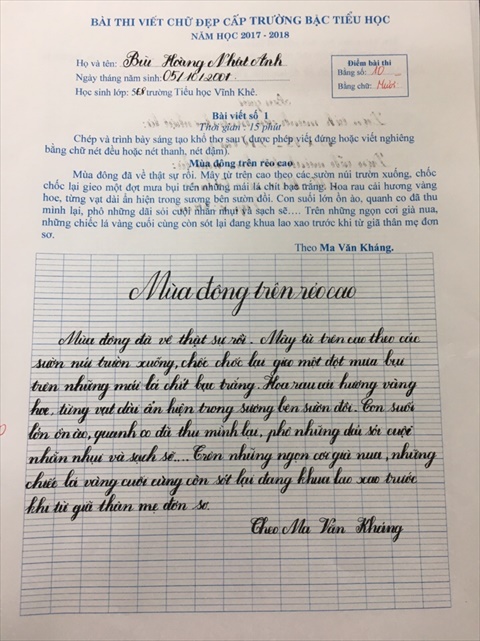 BÀI THI VIẾT CHỮ ĐẸP CẤP TRƯỜNG BẬC TIỂU HỌC
NĂM HỌC 2017 - 2018
Họ và tên: Bửu Hoàng Nhật Anh
Ngày tháng năm sinh: 05/10/2007
Học sinh lớp: 5E8 trường Tiểu học Vĩnh Khê.
Điểm bài thi
Bằng số: 10
Bằng chữ: Mười
Bài viết số 1
Thời gian: 15 phút
Chép và trình bày sáng tạo khổ thơ sau ( được phép viết đứng hoặc viết nghiêng
bằng chữ nét đều hoặc nét thanh, nét đậm).
Mùa đông trên rẻo cao
Mùa đông đã về thật sự rồi. Mây từ trên cao theo các sườn núi trườn xuống, chốc
chốc lại gieo một đợt mưa bụi trên những mái lá chít bạc trắng. Hoa rau cải hương vàng
hoe, từng vạt dài ẩn hiện trong sương bên sườn đồi. Con suối lớn ồn ào, quanh co đã thu
mình lại, phô những dải sỏi cuội nhẵn nhụi và sạch sẽ…. Trên những ngọn cơi già nua,
những chiếc lá vàng cuối cùng còn sót lại đang khua lao xao trước khi từ giã thân mẹ đơn
sơ.
Theo Ma Văn Kháng.
Mùa đông trên rẻo cao
Mùa đông đã về thật sự rồi. Mây từ trên cao theo các
sườn núi trườn xuống, chốc chốc lại gieo một đợt mưa bụi
trên những mái lá chít bạc trắng. Hoa rau cải hương vàng
hoe, từng vạt dài ẩn hiện trong sương bên sườn đồi. Con suối
lớn ồn ào, quanh co đã thu mình lại, phô những dải sỏi cuội
nhẵn nhụi và sạch sẽ.... Trên những ngọn cơi già nua, những
chiếc lá vàng cuối cùng còn sót lại đang khua lao xao trước
khi từ giã thân mẹ đơn sơ.
Theo Ma Văn Kháng